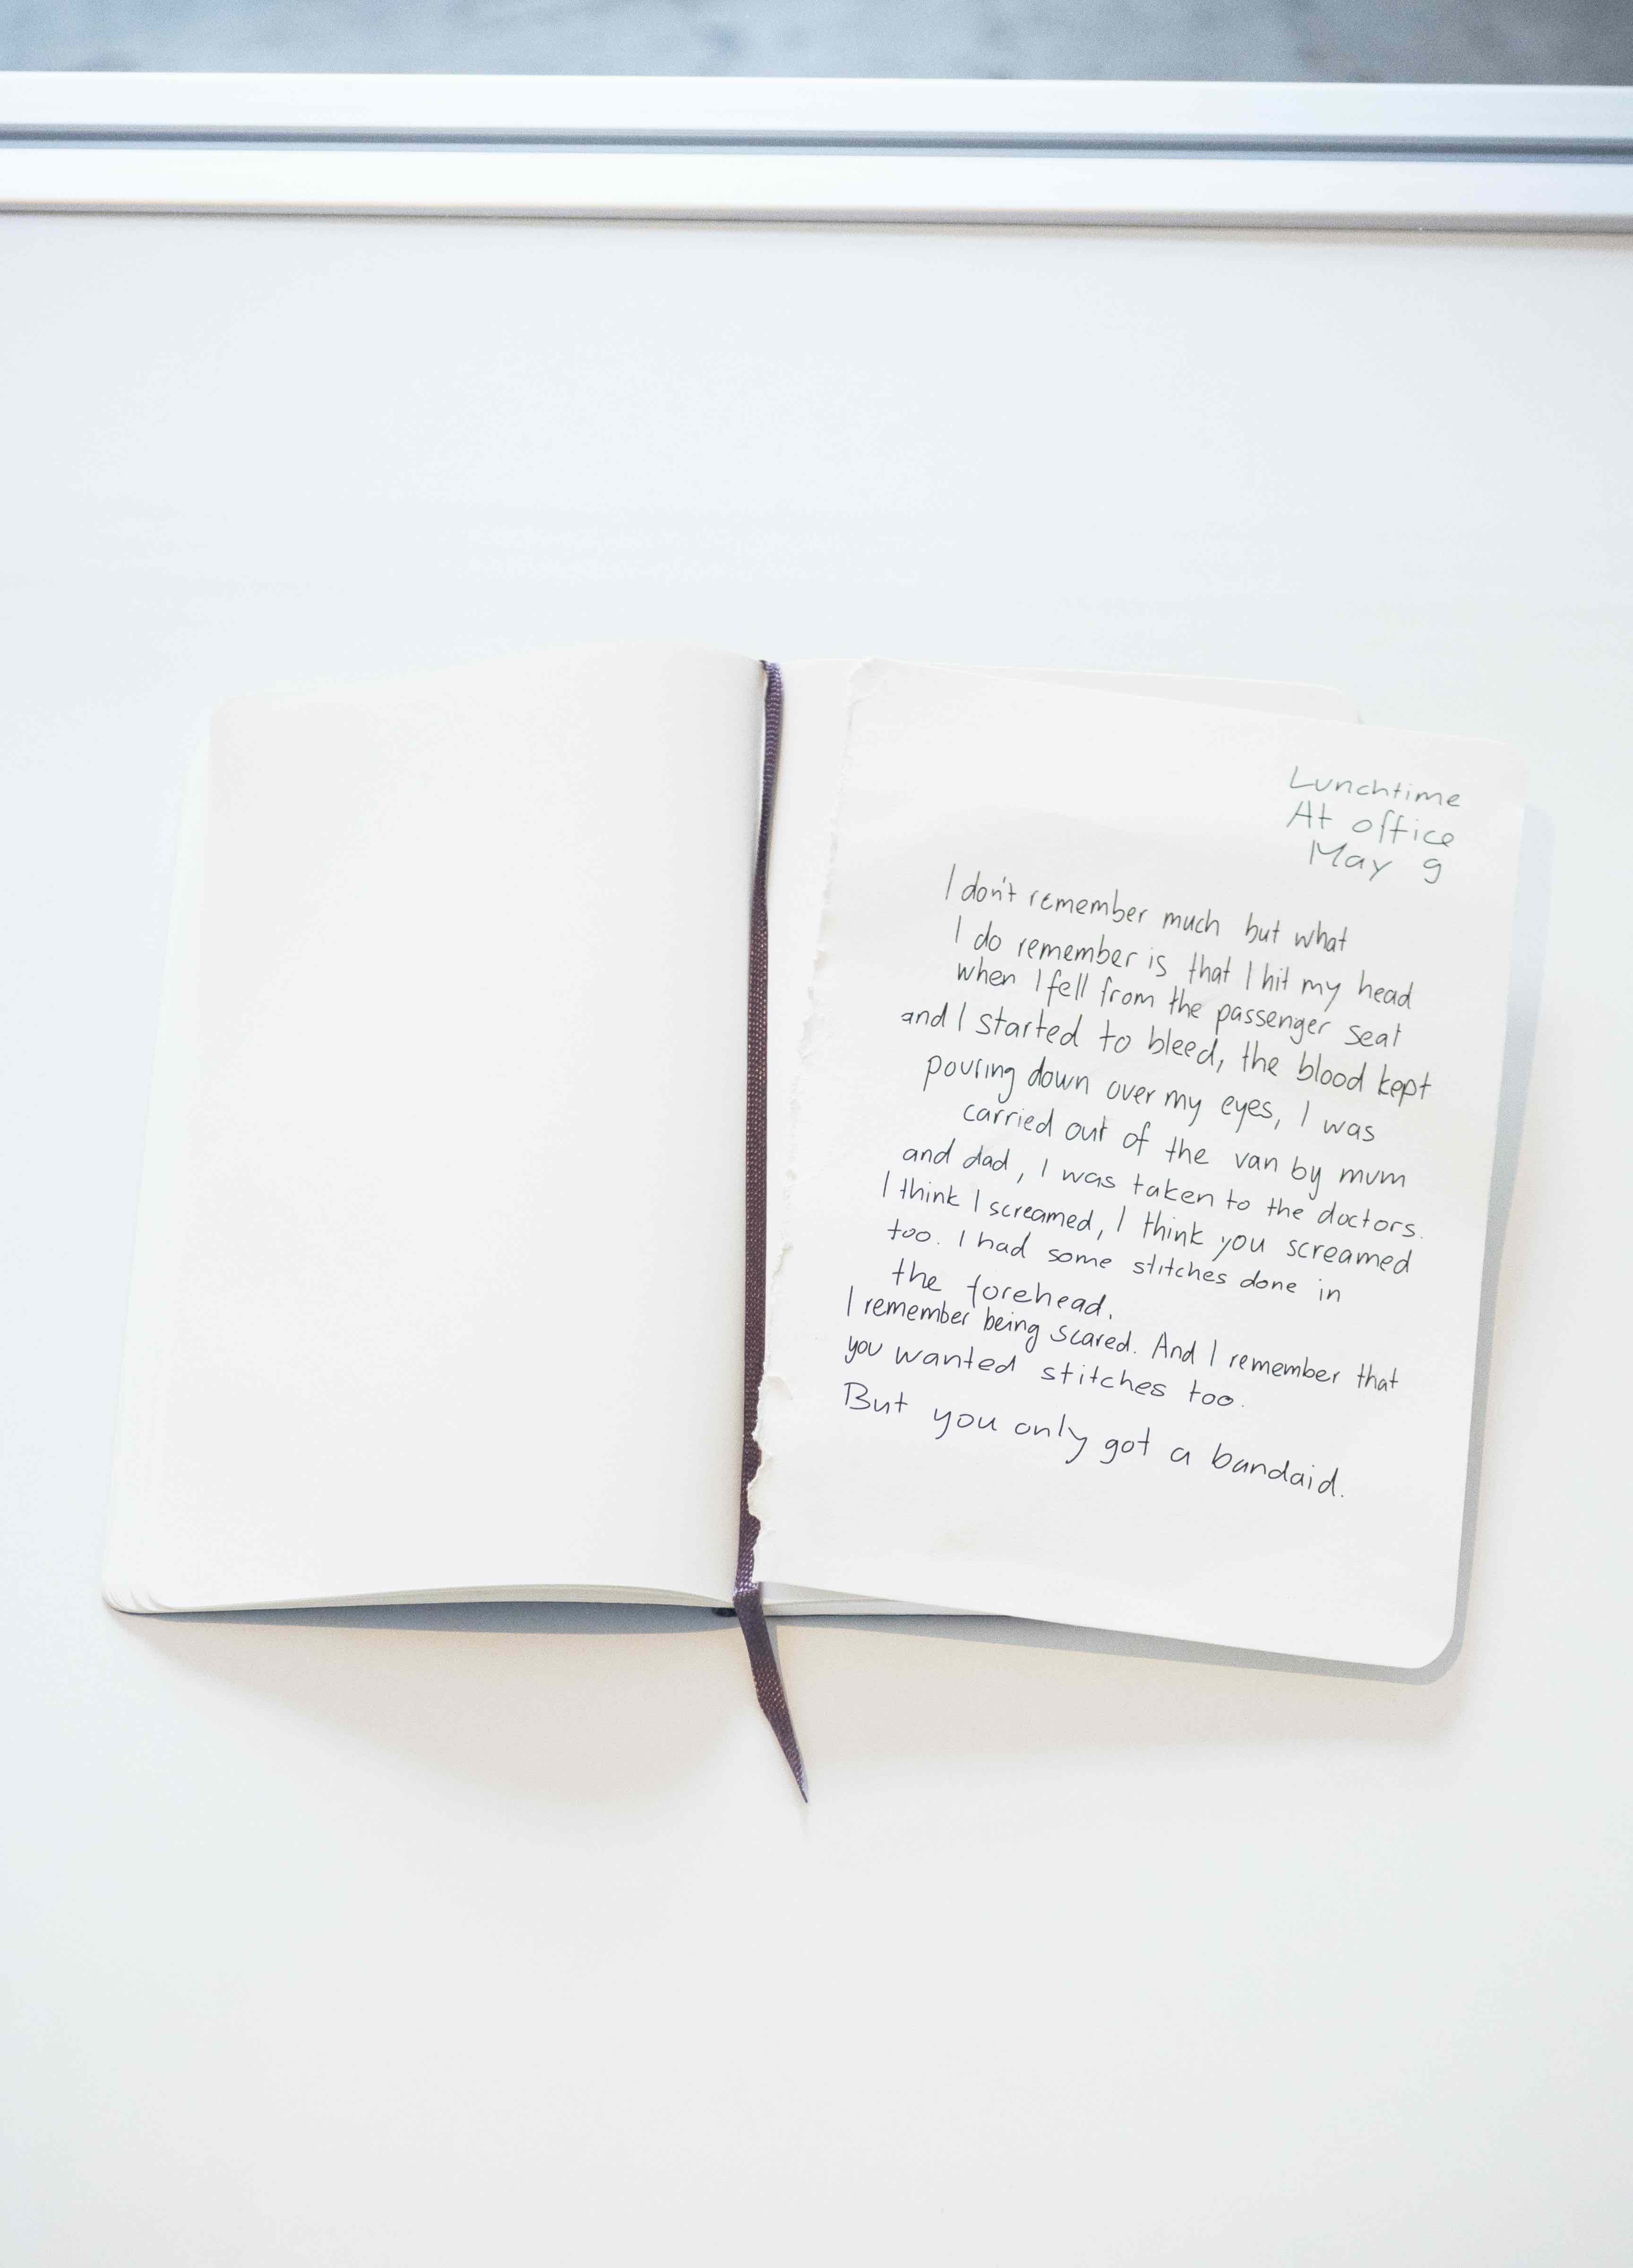 Lunchtime
At office
May 9
I don't remember much but what
I do remember is that I hit my head
when I fell from the passenger seat
and I started to bleed, the blood kept
pouring down over my eyes, I was
carried out of the van by mum
and dad, I was taken to the doctors.
I think I screamed, I think you screamed
too. I had some stitches done in
the forehead.
I remember being scared. And I remember that
you wanted stitches too.
But you only got a bandaid.